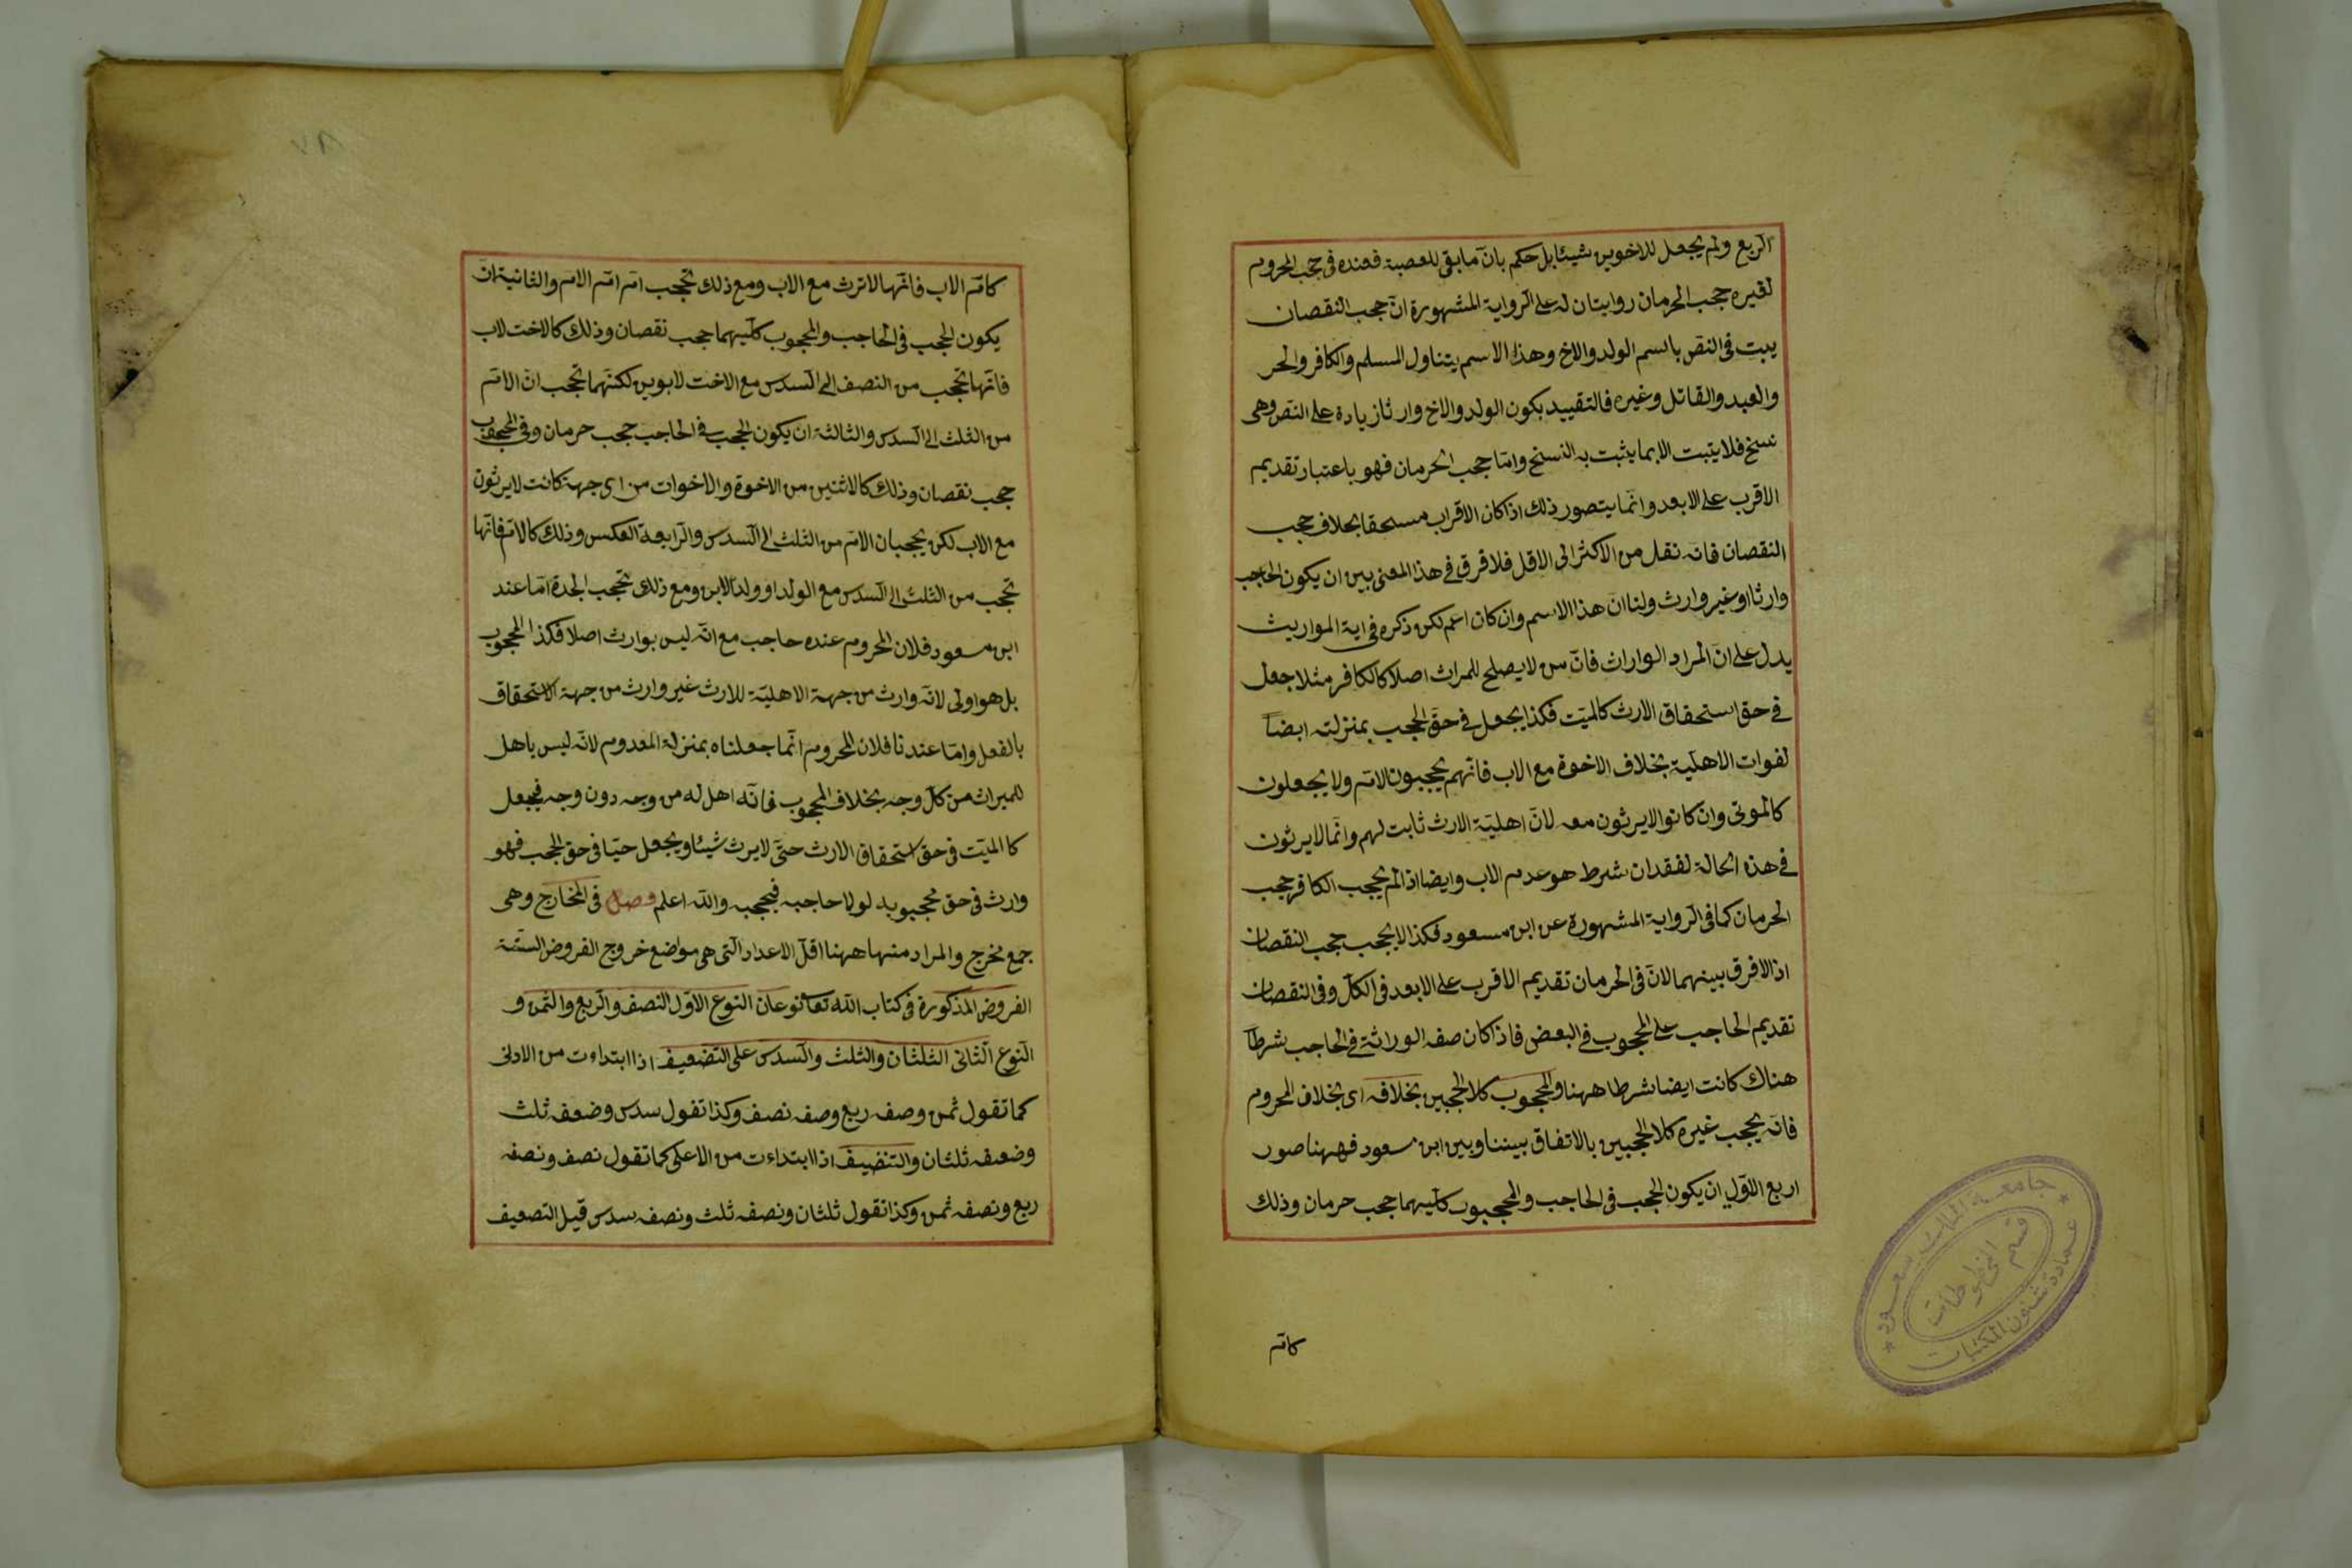 الربع ولم يجعل للاخوين شيئا بل حكم بان ما بقى للعصبة فعنده فى حجب المحروم
لغيره حجب الحرمان روايتان له على الرواية المشهورة ان حجب النقصان
يبت فى النص باسم الولد والاخ وهذا الاسم يتناول المسلم والكافر والحر
والعبد والقاتل وغيره فالتقييد بكون الولد والاخ وارثا زيادة على النص وهى
نسخ فلا يثبت الا بما يثبت به النسخ واما حجب الحرمان فهو باعتبار تقديم
الاقرب على الابعد وانما يتصور ذلك اذا كان الاقراب مستحقا بخلاف حجب
النقصان فانه نقل من الاكثر الى الاقل فلا فرق فى هذا المعنى بين ان يكون الحاجب
وارثا او غير وارث ولنا ان هذا الاسم وان كان اعم لكن ذكره فى اية المواريث
يدل على ان المراد الواراث فان من لا يصلح للمراث اصلا كالكافر مثلا جعل
فى حق استحقاق الارث كالميت فكذا يجعل فى حق الحجب بمنزلته ايضا
لفوات الاهلية بخلاف الاخوة مع الاب فانهم يحجبون الام ولا يجعلون
كالموتى وان كانوا لا يرثون معه لان اهلية الارث ثابت لهم وانما لا يرثون
فى هذه الحالة لفقدان شرط هو عدم الاب وايضا اذا لم يحجب الكافر حجب
الحرمان كما فى الرواية المشهورة عن ابن مسعود فكذا لا يحجب حجب النقصان
اذ لا فرق بينهما لان فى الحرمان تقديم الاقرب على الابعد فى الكل وفى النقصان
تقديم الحاجب على المحجوب فى البعض فاذا كان صفه الوراثة فى الحاجب شرطا
هناك كانت ايضا شرطا ههنا والمحجوب كلا الحجبين بخلافه اى بخلاف المحروم
فانه يحجب غيره كلا الحجبين بالاتفاق بيننا وبين ابن مسعود فههنا صور
اربع الاول ان يكون الحجب فى الحاجب والمحجوب كليهما حجب حرمان وذلك
كام
جامعة الملك سعود
قسم المخطوطات
عمادة شئون المكتبات
٧٨
كام الاب فانها لا ترث مع الاب ومع ذلك تحجب ام ام الام والثانية ان
يكون الحجب فى الحاجب والمحجوب كليهما حجب نقصان وذلك كالاخت لاب
فانها تحجب من النصف الى السدس مع الاخت لابوين لكنهما تحجب ان الام
من الثلث الى السدس والثالثة ان يكون الحجب فى الحاجب حجب حرمان وفى المحجوب
حجب نقصان وذلك كالاثنين من الاخوة والاخوات من اى جهة كانت لا يرثون
مع الاب لكن يحجبان الام من الثلث الى السدس والرابعة العكس وذلك كالام فانها
تحجب من الثلث الى السدس مع الولد او ولد الابن ومع ذلك تحجب الجدة اما عند
ابن مسعود فلان المحروم عنده حاجب مع انه ليس بوارث اصلا فكذا المحجوب
بل هو اولى لانه وارث من جهة الاهلية للارث غير وارث من جهة الاستحقاق
بالفعل واما عندنا فلان المحروم انما جعلناه بمنزلة المعدوم لانه ليس باهل
للميراث من كل وجه بخلاف المحجوب فانه اهل له من وجه دون وجه فيجعل
كا الميت فى حق استحقاق الارث حتى لا يرث شيئا ويجعل حيا فى حق الحجب فهو
وارث فى حق محجوبه لولا حاجبه فيحجبه والله اعلم فصل فى المخارج وهى
جمع مخرج والمراد منها ههنا اقل الاعداد التى هى مواضع خروج الفروض الستة
الفروض المذكورة فى كتاب الله تعا نوعان النوع الاول النصف والربع والثمن و
النوع الثانى الثلثان والثلث والسدس على التضعيف اذا ابتداءت من الادنى
كما تقول ثمن وصفه ربع وصفه نصف وكذا تقول سدس وضعفه ثلث
وضعفه ثلثان والتنضيف اذا ابتداءت من الاعلى كما تقول نصف ونصفه
ربع ونصفه ثمن وكذا تقول ثلثان ونصفه ثلث ونصفه سدس قيل التضعيف